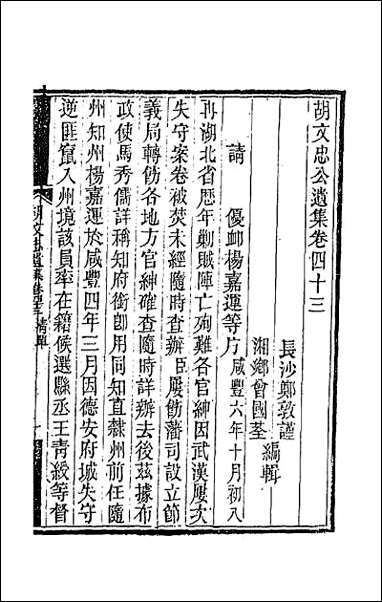 胡文忠公遺集卷四十三
長沙鄭敦謹
湘鄉曾國荃
編輯
請　優卹楊嘉運等片咸豐六年十月初八
再湖北省歷年剿賊陣亡殉難各官紳因武漢屢次
失守案卷被焚未經隨時查辦臣屢飭藩司設立節
義局轉飭各地方官紳確查隨時詳辦去後茲據布
政使馬秀儒詳稱知府銜卽用同知直隸州前任隨
州知州楊嘉運於咸豐四年三月因德安府城失守
逆匪竄入州境該員率在籍候選縣丞王青綬等督